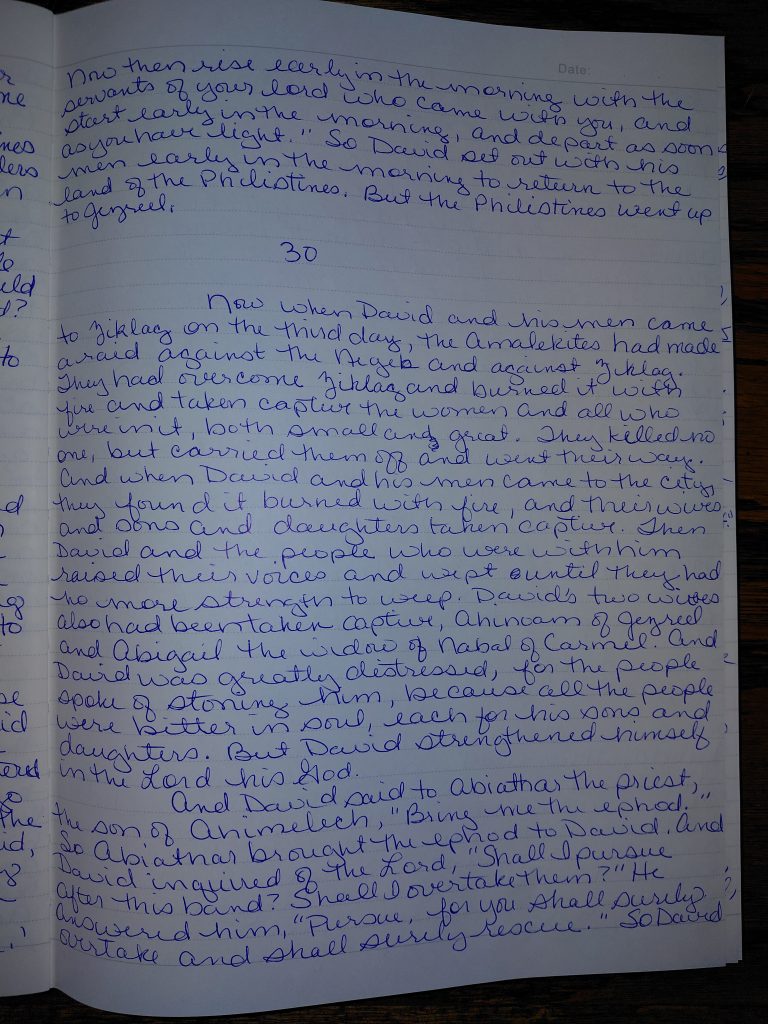 Date:
Now then rise early in the morning with the
servants of your lord who came with you, and
start early in the morning, and depart as soon
as you have light." So David set out with his
men early in the morning to return to the
land of the Philistines. But the Philistines went up
to Jezreel.
30
Now when David and his men came
to Ziklag on the third day, the Amalekites had made
a raid against the Negeb and against Ziklag.
They had overcome Ziklag and burned it with
fire and taken captive the women and all who
were in it, both small and great. They killed no
one, but carried them off and went their way.
And when David and his men came to the city,
they found it burned with fire, and their wives
and sons and daughters taken captive. Then
David and the people who were with him
raised their voices and wept until they had
no more strength to weep. David's two wives
also had been taken captive, Ahinoam of Jezreel
and Abigail the widow of Nabal of Carmel. And
David was greatly distressed, for the people
spoke of stoning him, because all the people
were bitter in soul, each for his sons and
daughters. But David strengthened himself
in the Lord his God.
And David said to Abiathar the priest,
the son of Ahimelech, "Bring me the ephod."
So Abiathar brought the ephod to David. And
David inquired of the Lord, "Shall I pursue
after this band? Shall I overtake them?" He
answered him, "Pursue, for you shall surely
overtake and shall surely rescue." So David